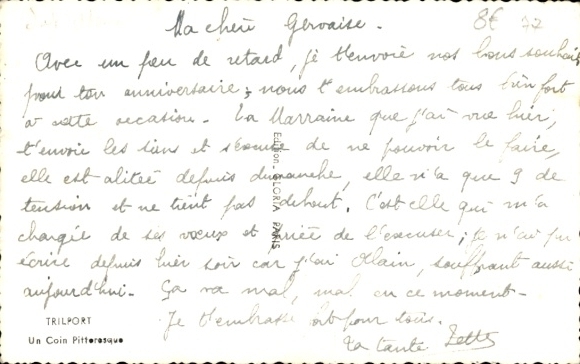 Ma chère Gervaise.
8€ 77
Avec un peu de retard, je t'envoie nos bons souhaits
pour ton anniversaire; nous t'embrassons tous bien fort
à cette occasion. Ta Marraine que j'ai vue hier,
t'envoie les siens et s'excuse de ne pouvoir le faire,
elle est alitée depuis dimanche, elle n'a que 9 de
tension et ne tient pas debout. C'est elle qui m'a
chargée de ses vœux et priée de l'excuser; je n'ai pu
écrire depuis hier soir car j'ai Alain, souffrant aussi
aujourd'hui. Ça va mal, mal en ce moment.
Je t'embrasse pour tous.
Ta tante
Edition GLORIA PARIS
TRILPORT
Un Coin Pittoresque